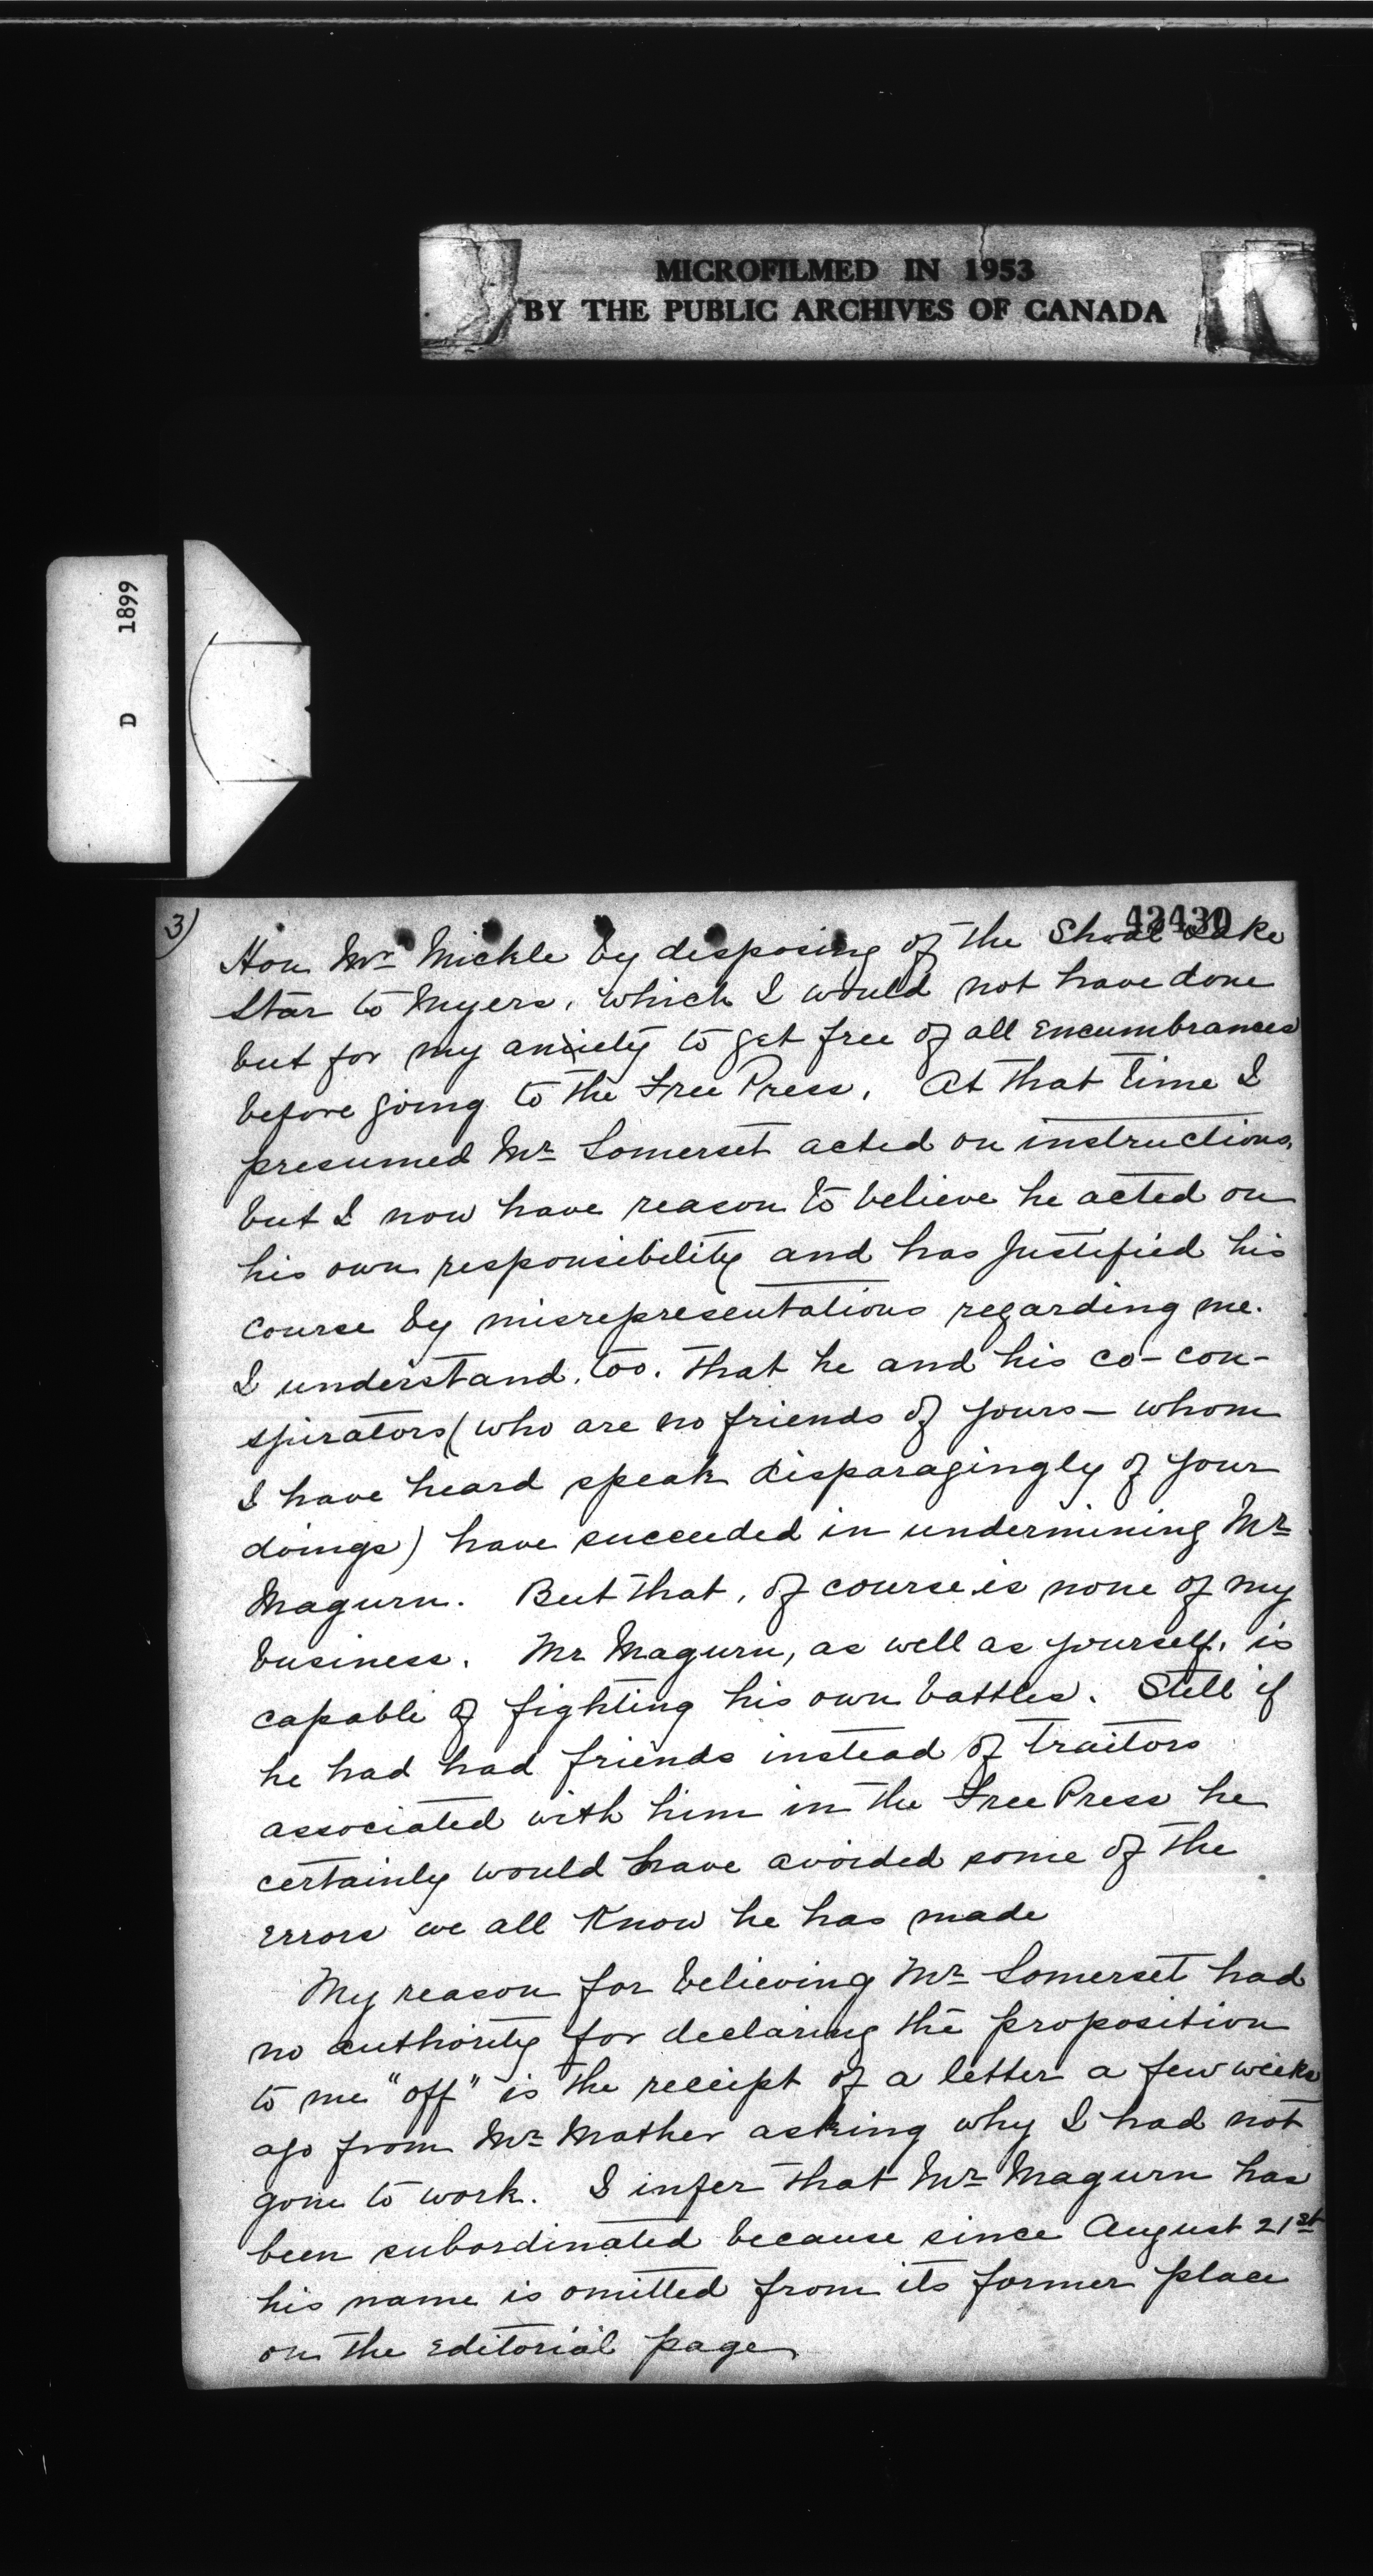 MICROFILMED IN 1953
BY THE PUBLIC ARCHIVES OF CANADA
D 1899
3)
42430
Hon Mr Mickle by disposing of the Shoal Lake
Star to Myers, which I would not have done
but for my anxiety to get free of all encumbrances
before going to the Free Press. At that time I
presumed Mr Somerset acted on instructions,
but I now have reason to believe he acted on
his own responsibility and has justified his
course by misrepresentations regarding me.
I understand, too, that he and his co-con-
spirators (who are no friends of yours - whom
I have heard speak disparagingly of your
doings) have succeeded in undermining Mr
Magurn. But that, of course is none of my
business. Mr Magurn, as well as yourself, is
capable of fighting his own battles. Still if
he had had friends instead of traitors
associated with him in the Free Press he
certainly would have avoided some of the
errors we all know he has made
My reason for believing Mr Somerset had
no authority for declaring the proposition
to me "off" is the receipt of a letter a few weeks
ago from Mr Mather asking why I had not
gone to work. I infer that Mr Magurn has
been subordinated because since August 21st
his name is omitted from its former place
on the editorial page